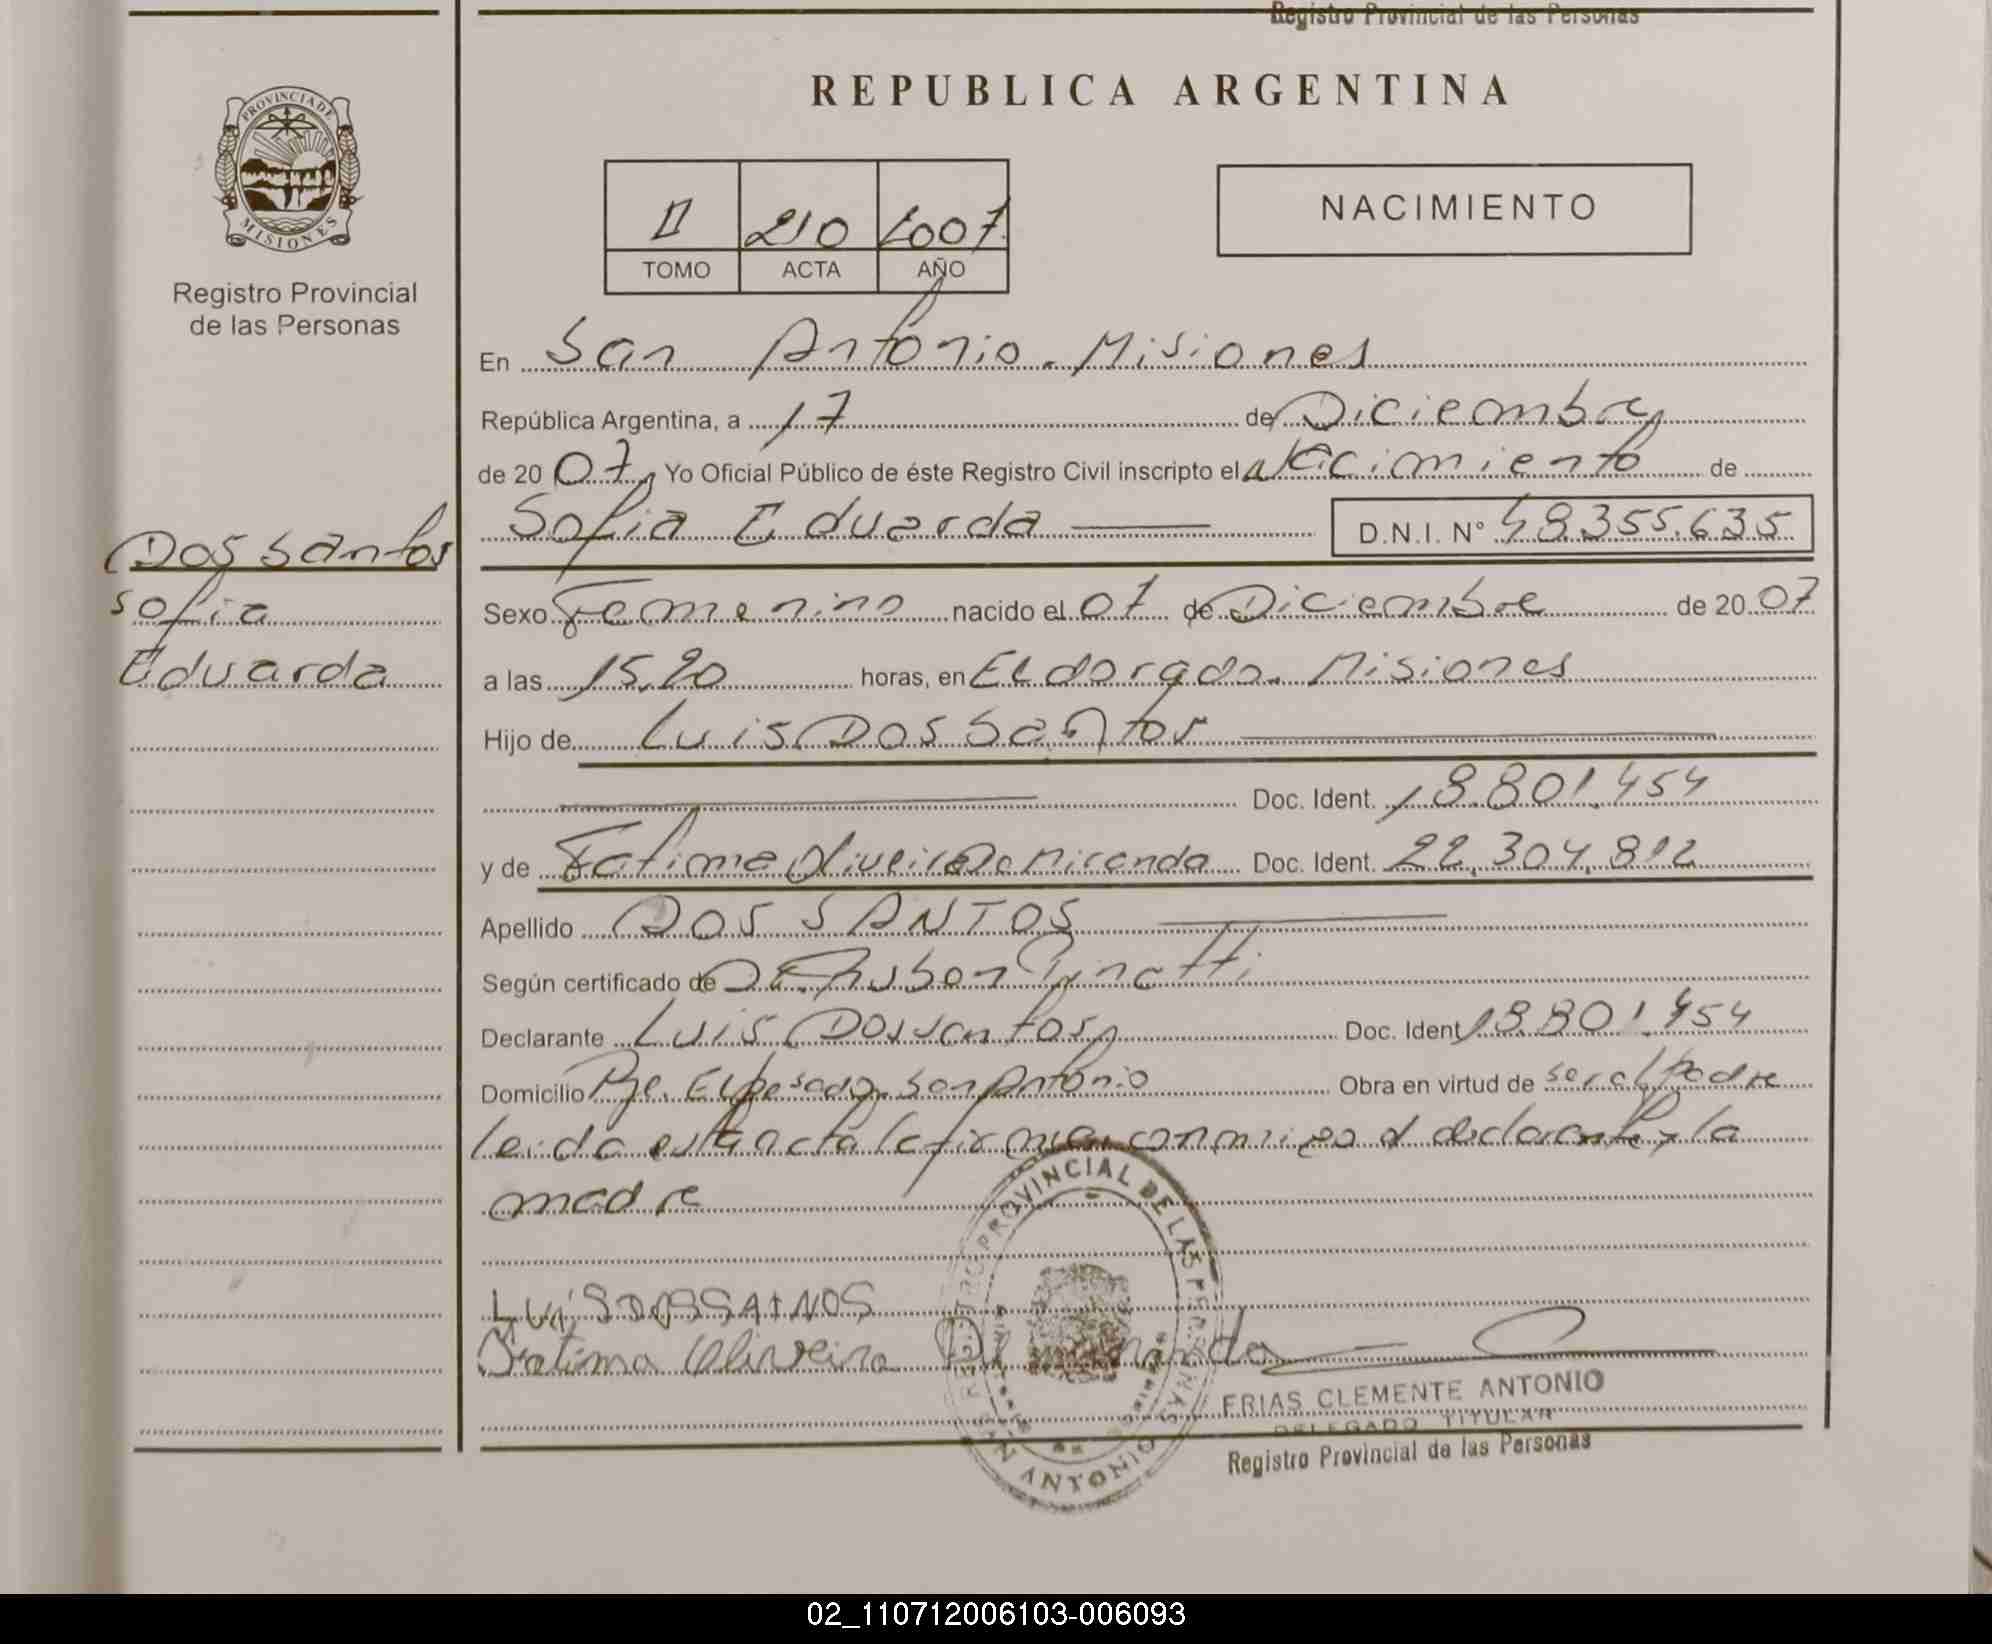 Registro Provincial de las Personas
REPUBLICA ARGENTINA
PROVINCIA DE
MISIONES
Registro Provincial
de las Personas
II 210 2007
TOMO ACTA AÑO
NACIMIENTO
En San Antonio. Misiones
República Argentina, a 17 de Diciembre
de 20 07, Yo Oficial Público de éste Registro Civil inscripto el Nacimiento de
Sofia Eduarda D.N.I. Nº 48.355.635
Dos Santos
Sofia
Eduarda
Sexo Femenino nacido el 07 de Diciembre de 20 07
a las 15,20 horas, en Eldorado. Misiones
Hijo de Luis Dos Santos
Doc. Ident. 18.801.454
y de Fatima Oliveira De Miranda Doc. Ident. 22.304.812
Apellido DOS SANTOS
Según certificado de Dr. Ruben
Declarante Luis Dos Santos Doc. Ident 18801.454
Domicilio Pje. El Pesado. San Antonio Obra en virtud de ser el padre
leida esta acta la firma conmigo el declarante y la
madre
LUIS DOSSATNOS
Fatima Oliveira De Miranda
REGISTRO PROVINCIAL DE LAS PERSONAS
SAN ANTONIO
FRIAS CLEMENTE ANTONIO
DELEGADO TITULAR
Registro Provincial de las Personas
02_110712006103-006093